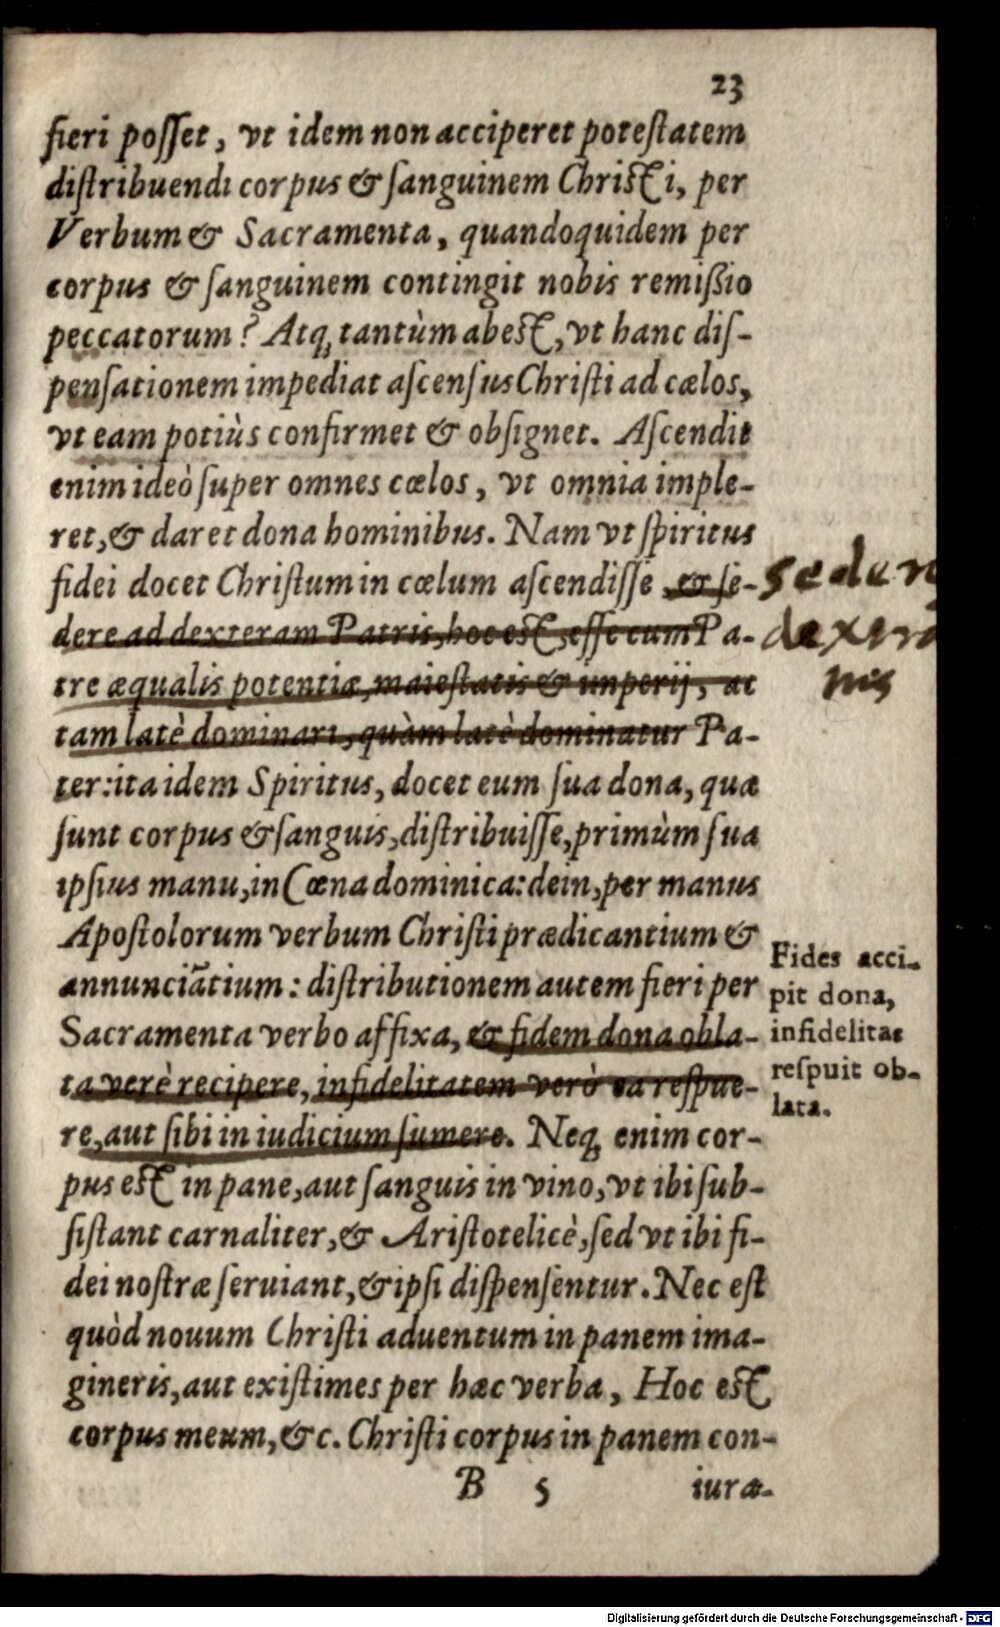 23
fieri posset, vt idem non acciperet potestatem
distribuendi corpus & sanguinem Christi, per
Verbum & Sacramenta, quandoquidem per
corpus & sanguinem contingit nobis remißio
peccatorum? Atq; tantùm abest, vt hanc dis-
pensationem impediat ascensus Christi ad cœlos,
vt eam potiùs confirmet & obsignet. Ascendit
enim ideò super omnes cœlos, vt omnia imple-
ret, & daret dona hominibus. Nam vt spiritus
fidei docet Christum in cœlum ascendisse, & se-
dere ad dexteram Patris, hoc est, esse cum Pa-
tre æqualis potentiæ, maiestatis & imperij, ac
tam latè dominari, quàm latè dominatur Pa-
ter: ita idem Spiritus, docet eum sua dona, quæ
sunt corpus & sanguis, distribuisse, primùm sua
ipsius manu, in Cœna dominica: dein, per manus
Apostolorum verbum Christi prædicantium &
annunciãtium: distributionem autem fieri per
Sacramenta verbo affixa, & fidem dona obla-
ta verè recipere, infidelitatem verò ea respue-
re, aut sibi in iudicium sumere. Neq; enim cor-
pus est in pane, aut sanguis in vino, vt ibi sub-
sistant carnaliter, & Aristotelicè, sed vt ibi fi-
dei nostræ seruiant, & ipsi dispensentur. Nec est
quòd nouum Christi aduentum in panem ima-
gineris, aut existimes per hæc verba, Hoc est
corpus meum, &c. Christi corpus in panem con-
B 5 iura-
seden
dextra
Fides acci-
pit dona,
infidelitas
respuit ob-
lata.
Digitalisierung gefördert durch die Deutsche Forschungsgemeinschaft - DFG